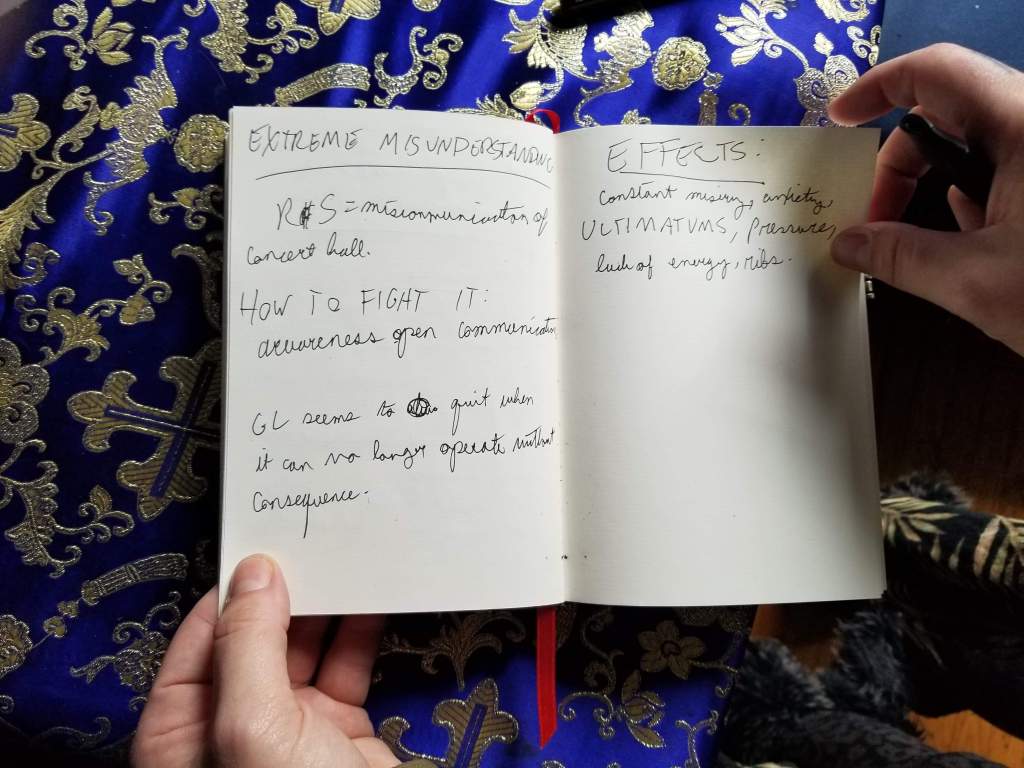 EXTREME MISUNDERSTANDING
R S = miscommunication of
concert hall.
HOW TO FIGHT IT:
awareness open communication
GL seems to quit when
it can no longer operate without
consequence.
EFFECTS:
Constant misery,
ULTIMATUMS, Pressure,
lack of energy, ribs.